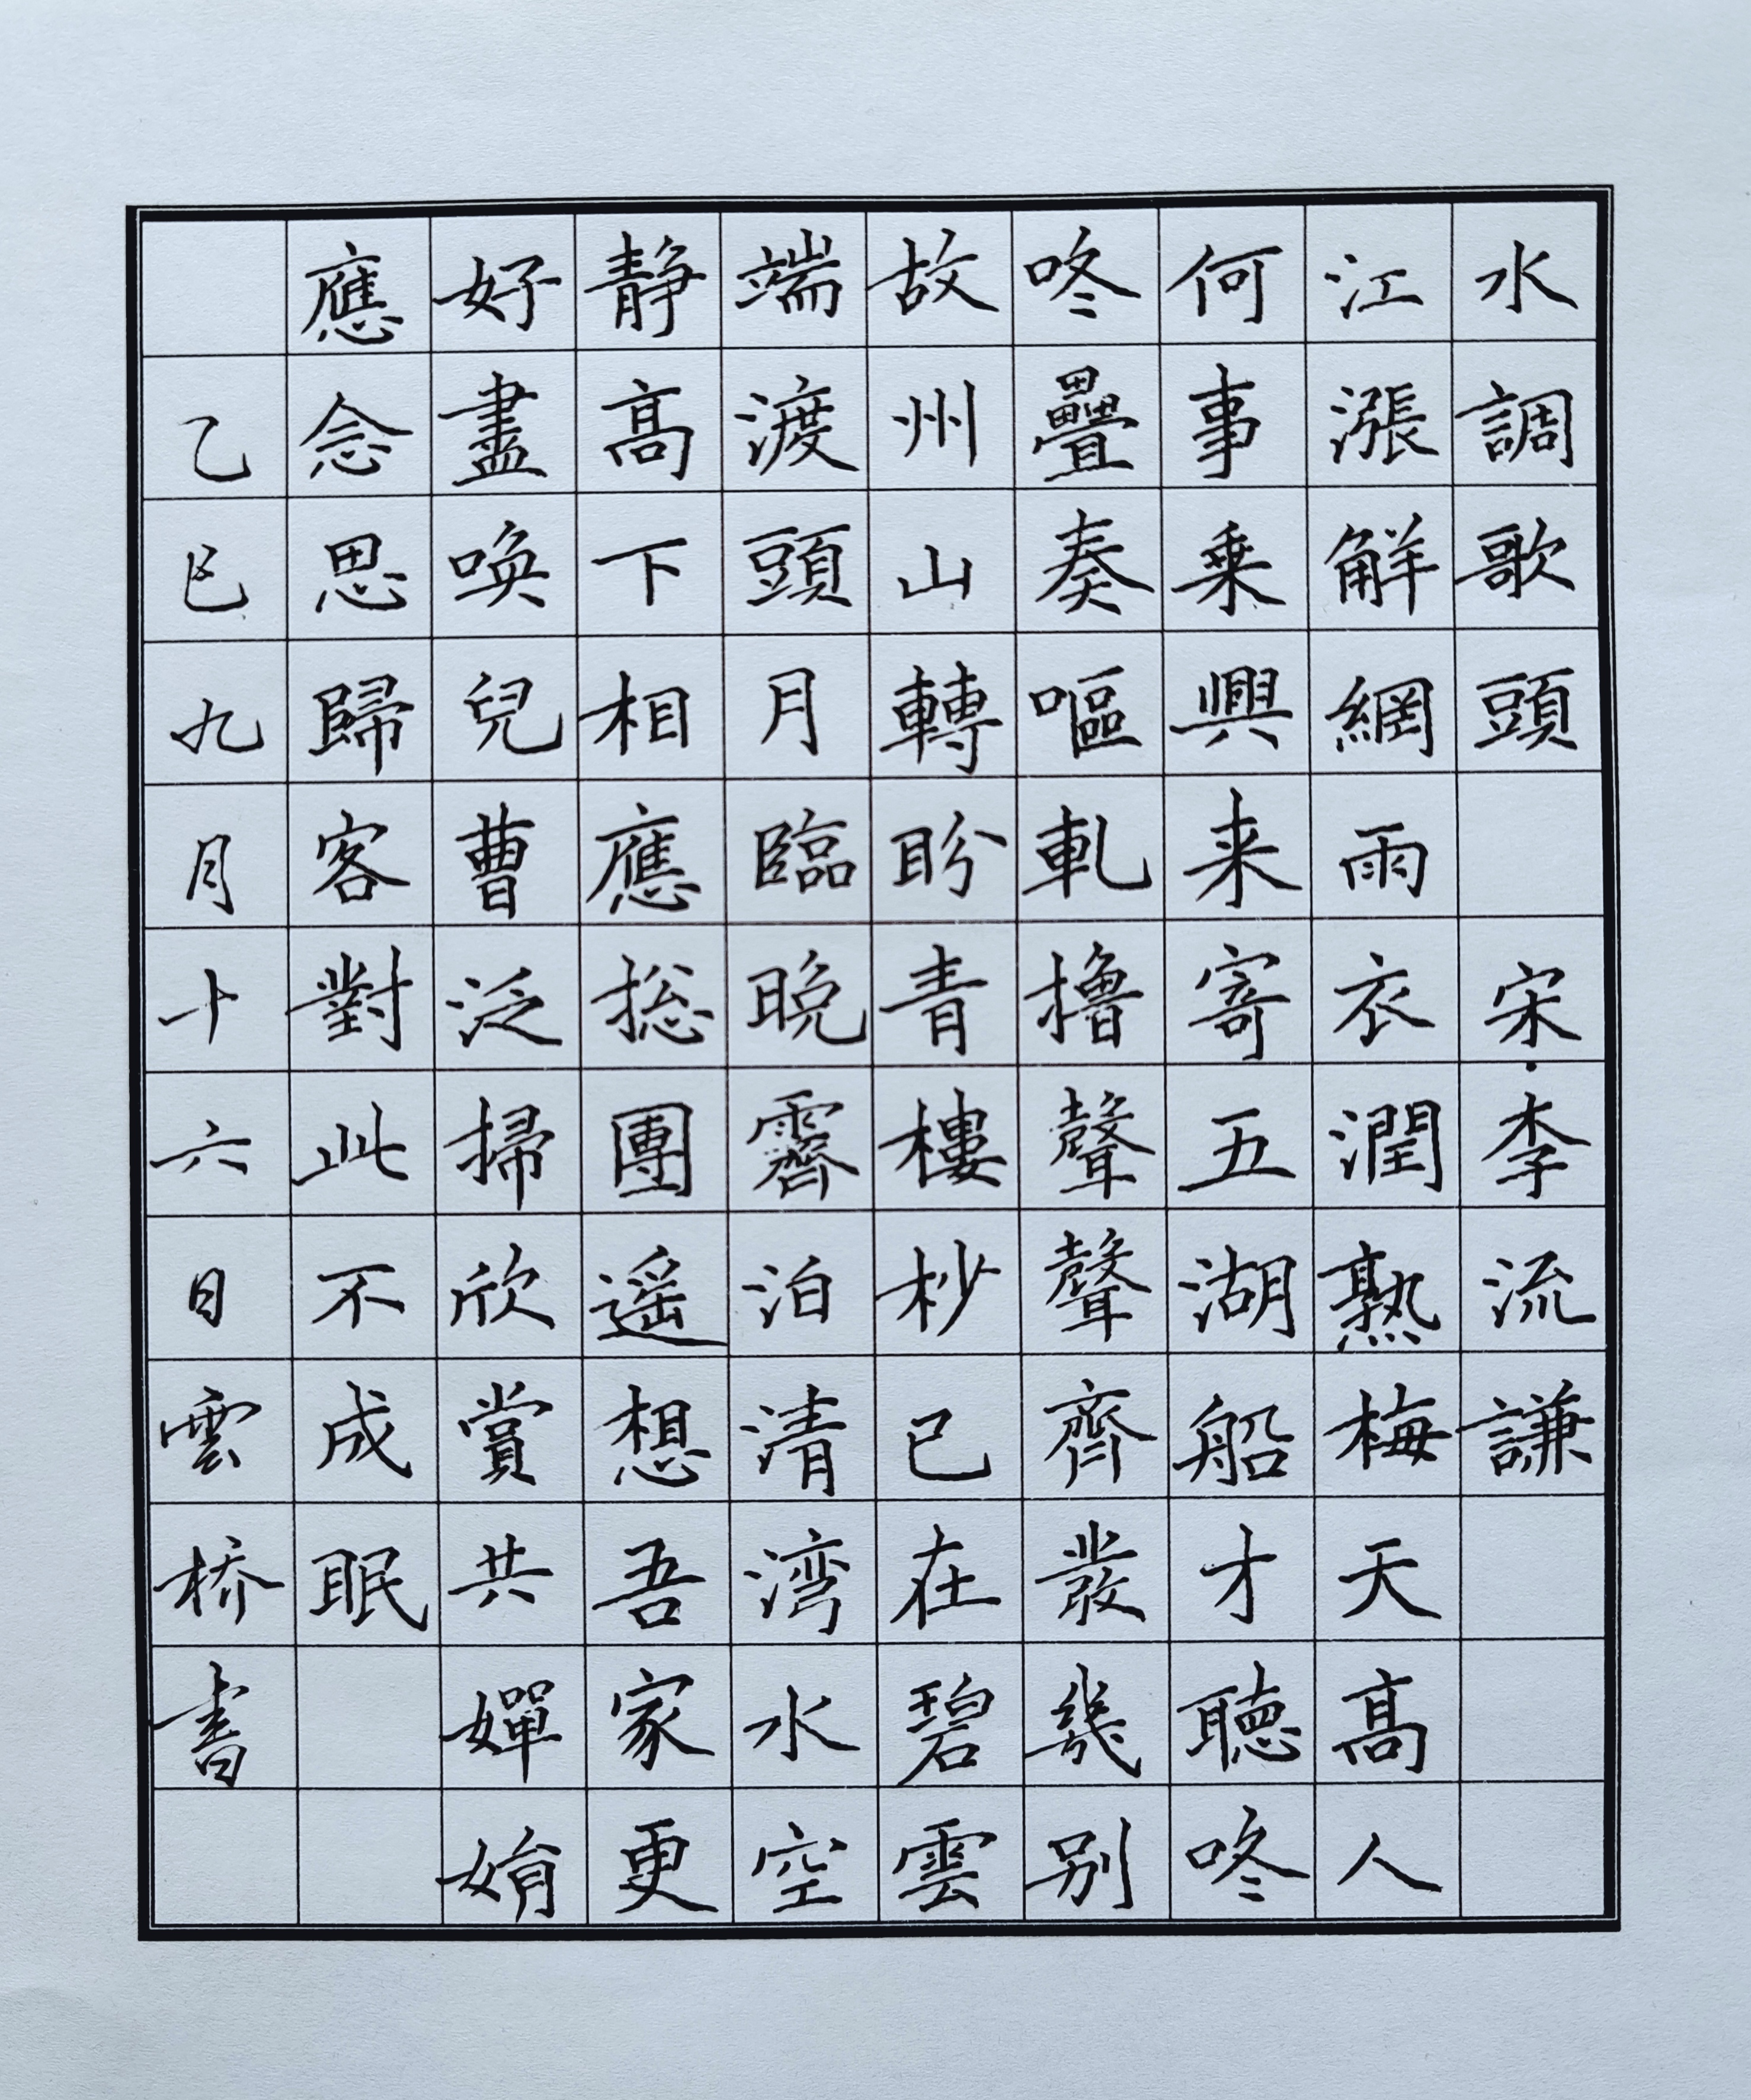 水調歌頭 宋·李流謙
江漲解網雨衣潤熟梅天高人
何事乗興来寄五湖船才聽咚
咚疊奏嘔軋擼聲聲齊叢幾别
故州山轉盼青樓杪已在碧雲
端渡頭月臨晚霽泊清湾水空
静高下相應揔團遥想吾家更
好盡喚兒曹泛掃欣賞共嬋娟
應念思歸客對此不成眠
乙巳九月十六日雲桥書